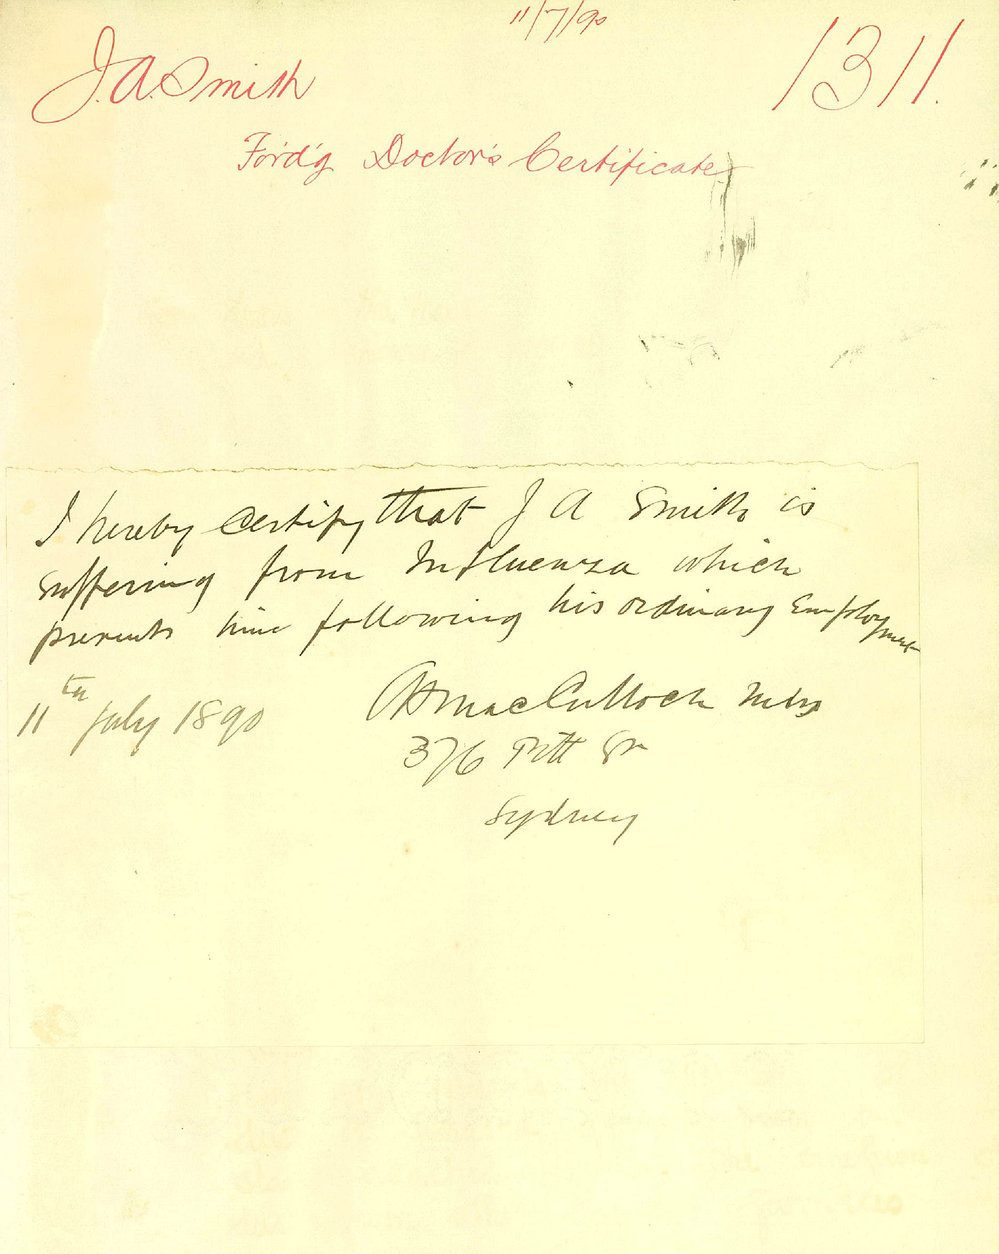 11/7/90
J.A. Smith
1311.
Ford'g Doctor's Certificate
I hereby certify that J A Smith is
suffering from Influenza which
prevents him following his ordinary Employment
11th July 1890
MacCulloch
376 Pitt St
Sydney